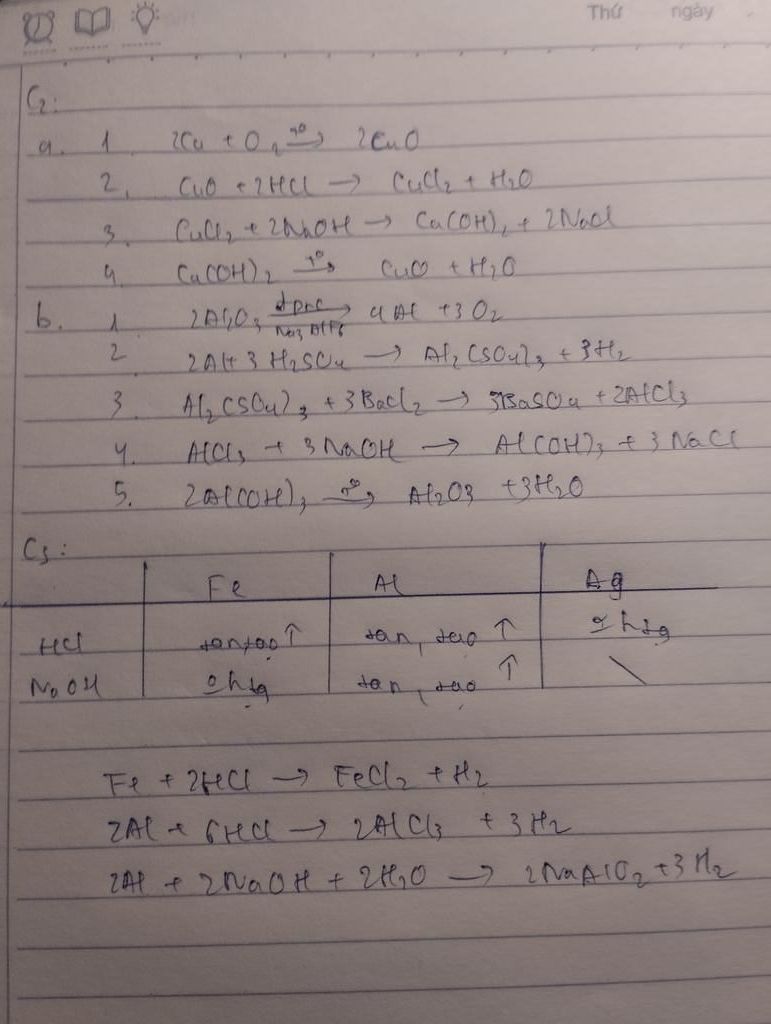 Thứ ngày
C2:
a. 1 2Cu + O2 t°→ 2CuO
2, CuO + 2HCl → CuCl2 + H2O
3. CuCl2 + 2NaOH → Cu(OH)2 + 2NaCl
4. Cu(OH)2 t°→ CuO + H2O
b. 1 2Al2O3 đpnc→ Na3AlF6 4Al + 3O2
2 2Al + 3H2SO4 → Al2(SO4)3 + 3H2
3. Al2(SO4)3 + 3BaCl2 → 3BaSO4 + 2AlCl3
4. AlCl3 + 3NaOH → Al(OH)3 + 3NaCl
5. 2Al(OH)3 t°→ Al2O3 + 3H2O
C3:
Fe Al Ag
HCl tan, tạo ↑ tan, tạo ↑ 0 htg
NaOH 0 htg tan, tạo ↑ \
Fe + 2HCl → FeCl2 + H2
2Al + 6HCl → 2AlCl3 + 3H2
2Al + 2NaOH + 2H2O → 2NaAlO2 + 3H2